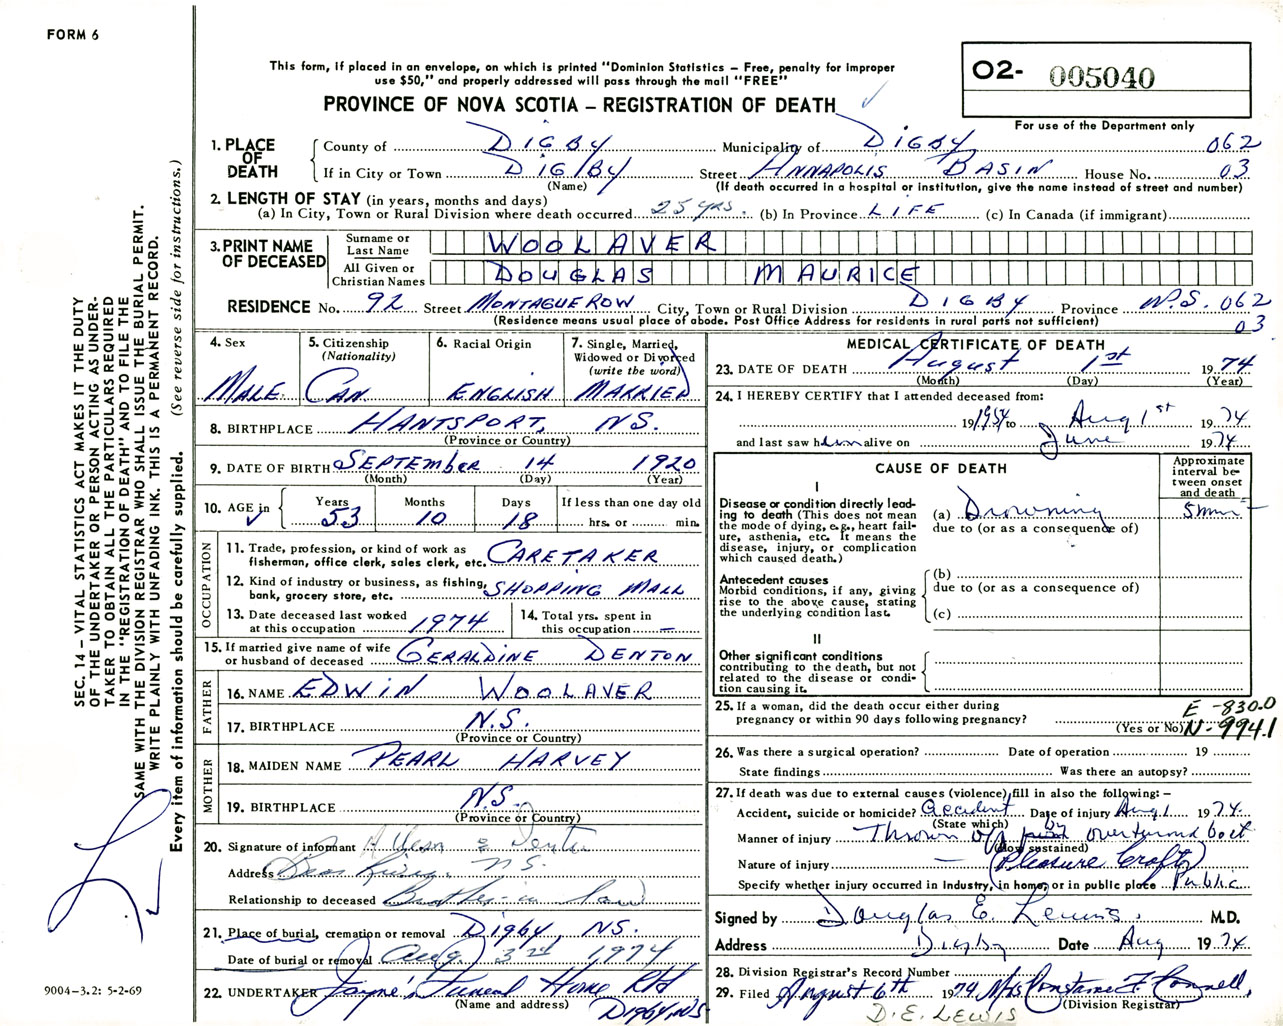 FORM 6
This form, if placed in an envelope, on which is printed "Dominion Statistics – Free, penalty for improper
use $50," and properly addressed will pass through the mail "FREE"
PROVINCE OF NOVA SCOTIA – REGISTRATION OF DEATH
02- 005040
For use of the Department only
SEC. 14 – VITAL STATISTICS ACT MAKES IT THE DUTY
OF THE UNDERTAKER OR PERSON ACTING AS UNDER-
TAKER TO OBTAIN ALL THE PARTICULARS REQUIRED
IN THE "REGISTRATION OF DEATH" AND TO FILE THE
SAME WITH THE DIVISION REGISTRAR WHO SHALL ISSUE THE BURIAL PERMIT.
WRITE PLAINLY WITH UNFADING INK. THIS IS A PERMANENT RECORD.
Every item of information should be carefully supplied. (See reverse side for instructions.)
1. PLACE OF DEATH
County of DIGBY Municipality of DIGBY 062
If in City or Town DIGBY Street ANNAPOLIS BASIN House No. 03
(Name) (If death occurred in a hospital or institution, give the name instead of street and number)
2. LENGTH OF STAY (in years, months and days)
(a) In City, Town or Rural Division where death occurred 25 yrs. (b) In Province LIFE (c) In Canada (if immigrant)
3. PRINT NAME OF DECEASED
Surname or Last Name WOOLAVER
All Given or Christian Names DOUGLAS MAURICE
RESIDENCE No. 92 Street MONTAGUE ROW City, Town or Rural Division DIGBY Province N.S. 062
(Residence means usual place of abode. Post Office Address for residents in rural parts not sufficient) 03
4. Sex MALE
5. Citizenship (Nationality) CAN.
6. Racial Origin ENGLISH
7. Single, Married, Widowed or Divorced (write the word) MARRIED
8. BIRTHPLACE HANTSPORT, NS.
(Province or Country)
9. DATE OF BIRTH SEPTEMBER 14 1920
(Month) (Day) (Year)
10. AGE in Years 53 Months 10 Days 18 If less than one day old hrs. or min.
OCCUPATION
11. Trade, profession, or kind of work as fisherman, office clerk, sales clerk, etc. CARETAKER
12. Kind of industry or business, as fishing, bank, grocery store, etc. SHOPPING MALL
13. Date deceased last worked at this occupation 1974
14. Total yrs. spent in this occupation —
15. If married give name of wife or husband of deceased GERALDINE DENTON
FATHER
16. NAME EDWIN WOOLAVER
17. BIRTHPLACE N.S.
(Province or Country)
MOTHER
18. MAIDEN NAME PEARL HARVEY
19. BIRTHPLACE N.S.
(Province or Country)
20. Signature of informant
Address N S.
Relationship to deceased Brother-in law
21. Place of burial, cremation or removal DIGBY, NS.
Date of burial or removal Aug. 3rd 1974
22. UNDERTAKER Jayne's Funeral Home Ltd
(Name and address) Digby, NS
9004–3.2: 5-2-69
MEDICAL CERTIFICATE OF DEATH
23. DATE OF DEATH August 1st 1974
(Month) (Day) (Year)
24. I HEREBY CERTIFY that I attended deceased from:
19 1954 to Aug 1st 1974
and last saw him alive on June 1974
CAUSE OF DEATH
Approximate interval between onset and death
I
Disease or condition directly leading to death (This does not mean the mode of dying, e.g., heart failure, asthenia, etc. It means the disease, injury, or complication which caused death.)
(a) Drowning 5 min
due to (or as a consequence of)
Antecedent causes
Morbid conditions, if any, giving rise to the above cause, stating the underlying condition last.
(b)
due to (or as a consequence of)
(c)
II
Other significant conditions contributing to the death, but not related to the disease or condition causing it.
25. If a woman, did the death occur either during
pregnancy or within 90 days following pregnancy?
(Yes or No)
E -830.0
N-9941
26. Was there a surgical operation? Date of operation 19
State findings Was there an autopsy?
27. If death was due to external causes (violence) fill in also the following: –
Accident, suicide or homicide? accident Date of injury Aug 1 1974
(State which)
Manner of injury Thrown overturned boat
(How sustained)
Nature of injury — (Pleasure Craft)
Specify whether injury occurred in Industry, in home, or in public place Public
Signed by Douglas E. Lewis. M.D.
Address Digby Date Aug 1974
28. Division Registrar's Record Number
29. Filed August 6th 1974 Mrs Constance F. Connell,
(Division Registrar)
D. E. LEWIS